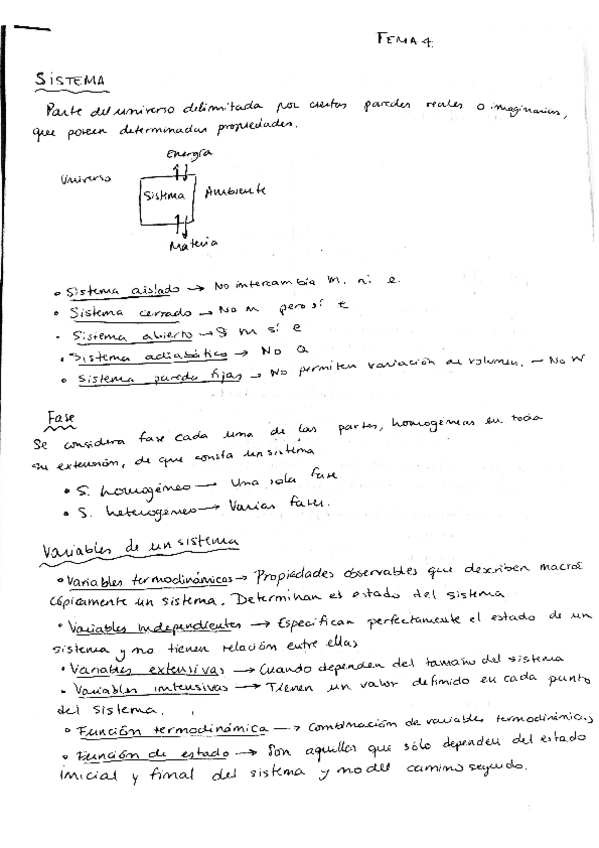 TEMA 4.
SISTEMA
Parte del universo delimitada por ciertas paredes reales o imaginarias,
que poseen determinadas propiedades.
Energía
Universo
Sistema
Ambiente
Materia
• Sistema aislado → No intercambia m. ni e.
• Sistema cerrado → No m pero sí e
• Sistema abierto → S m sí e
• Sistema adiabático → No Q
• Sistema paredes fijas → No permiten variación de volumen. – No W
Fase
Se considera fase cada una de las partes, homogéneas en toda
su extensión, de que consta un sistema
• S. homogéneo → Una sola fase
• S. heterogéneo → Varias fases.
Variables de un sistema
• Variables termodinámicas → Propiedades observables que describen macros
cópicamente un sistema. Determinan el estado del sistema
• Variables independientes → Especifican perfectamente el estado de un
sistema y no tienen relación entre ellas
• Variables extensivas → Cuando dependen del tamaño del sistema
• Variables intensivas → Tienen un valor definido en cada punto
del sistema.
• Función termodinámica → Combinación de variables termodinámicas
• Función de estado → Son aquellas que sólo dependen del estado
inicial y final del sistema y no del camino seguido.